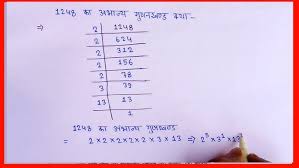 1248 का अभाज्य गुणनखण्ड क्या:-
⇒ 2 | 1248
2 | 624
2 | 312
2 | 156
2 | 78
3 | 39
13 | 13
1
1248 का अभाज्य गुणखण्ड
= 2 × 2 × 2 × 2 × 2 × 3 × 13 ⇒ 2⁵ × 3¹ × 13